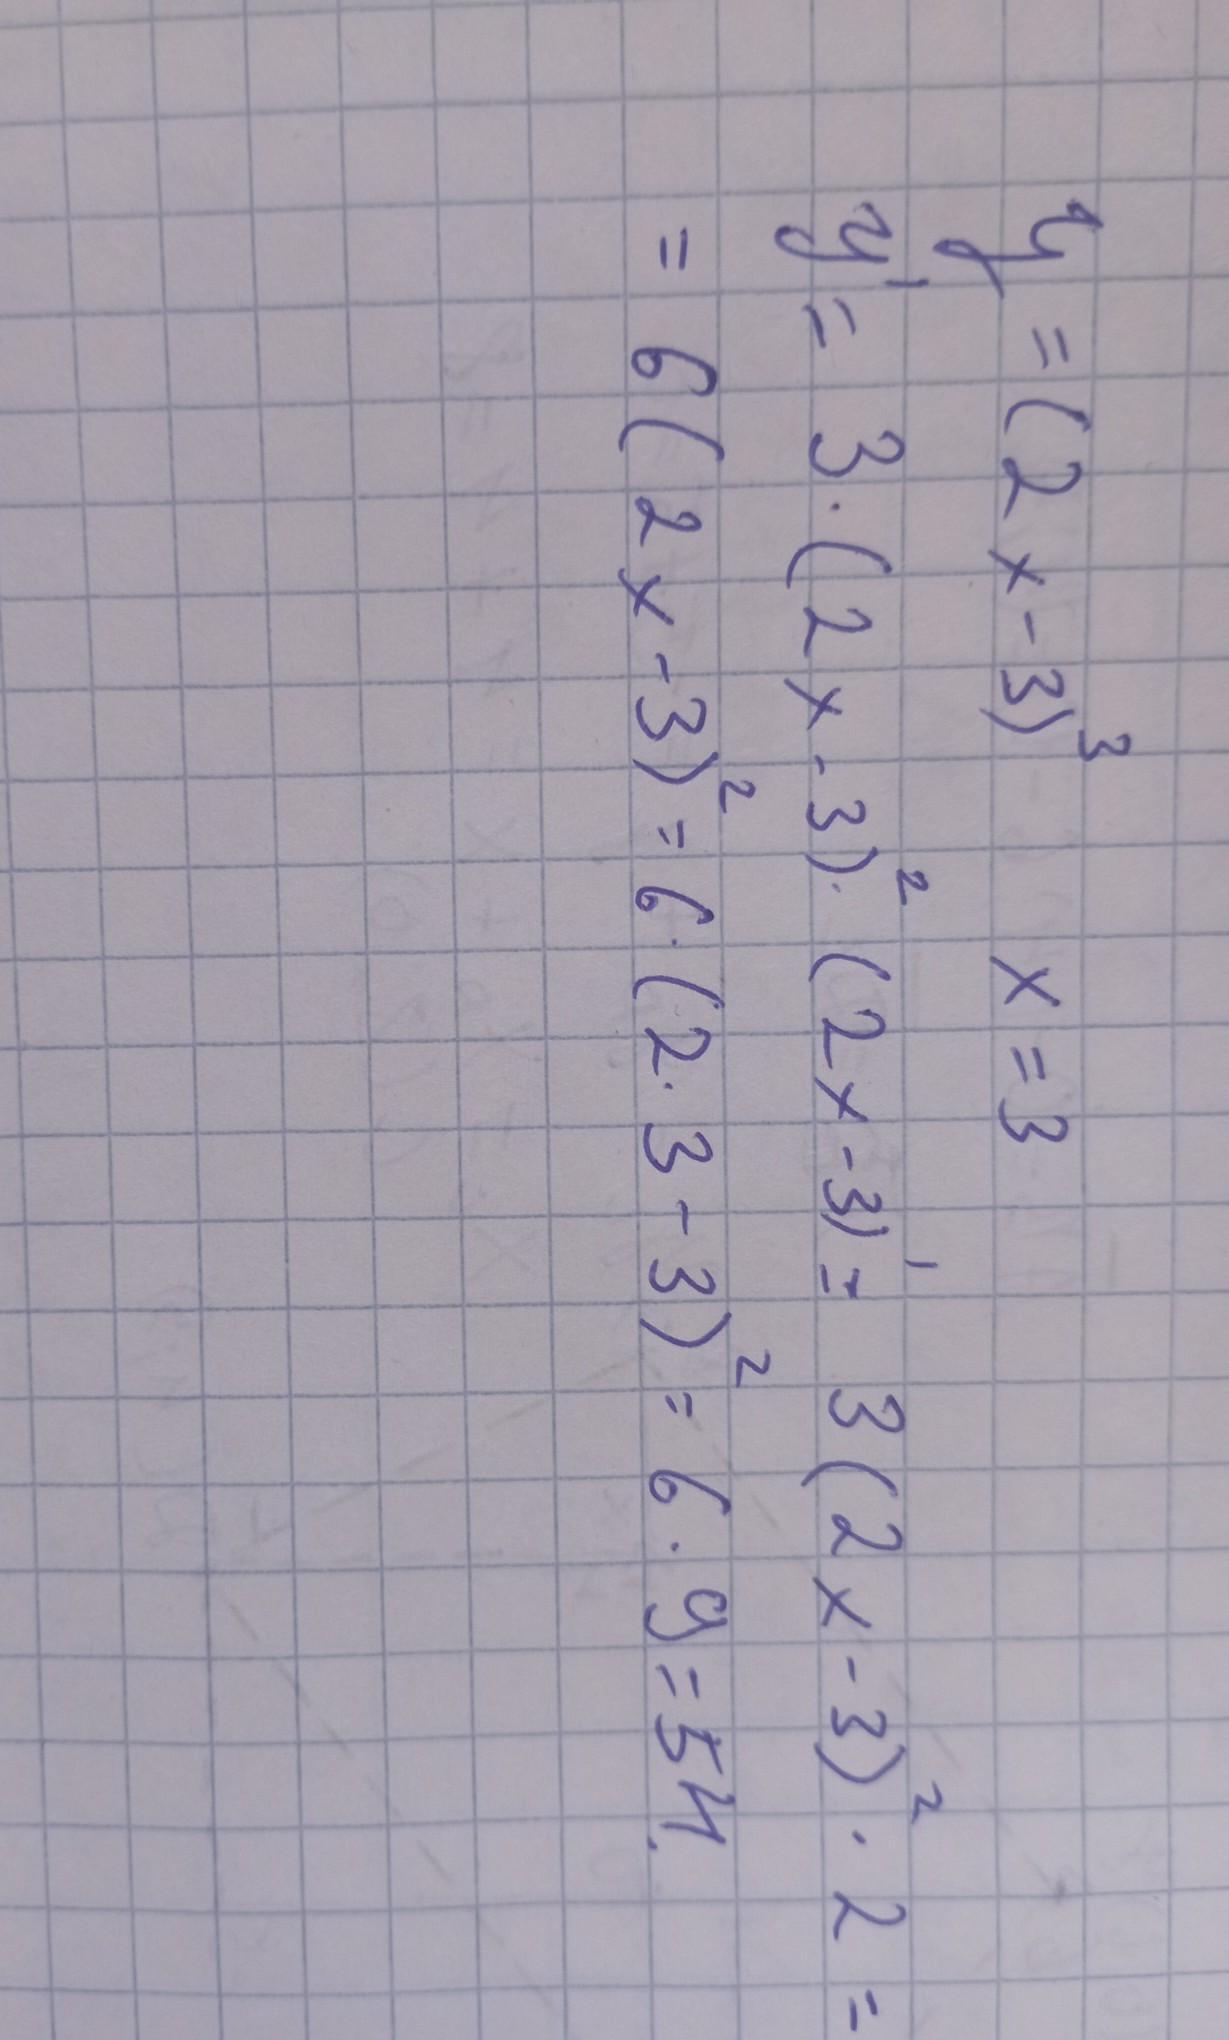 y = (2x-3)³ x = 3
y' = 3·(2x-3)²·(2x-3)' = 3(2x-3)²·2 =
= 6(2x-3)² = 6·(2·3-3)² = 6·9 = 54.